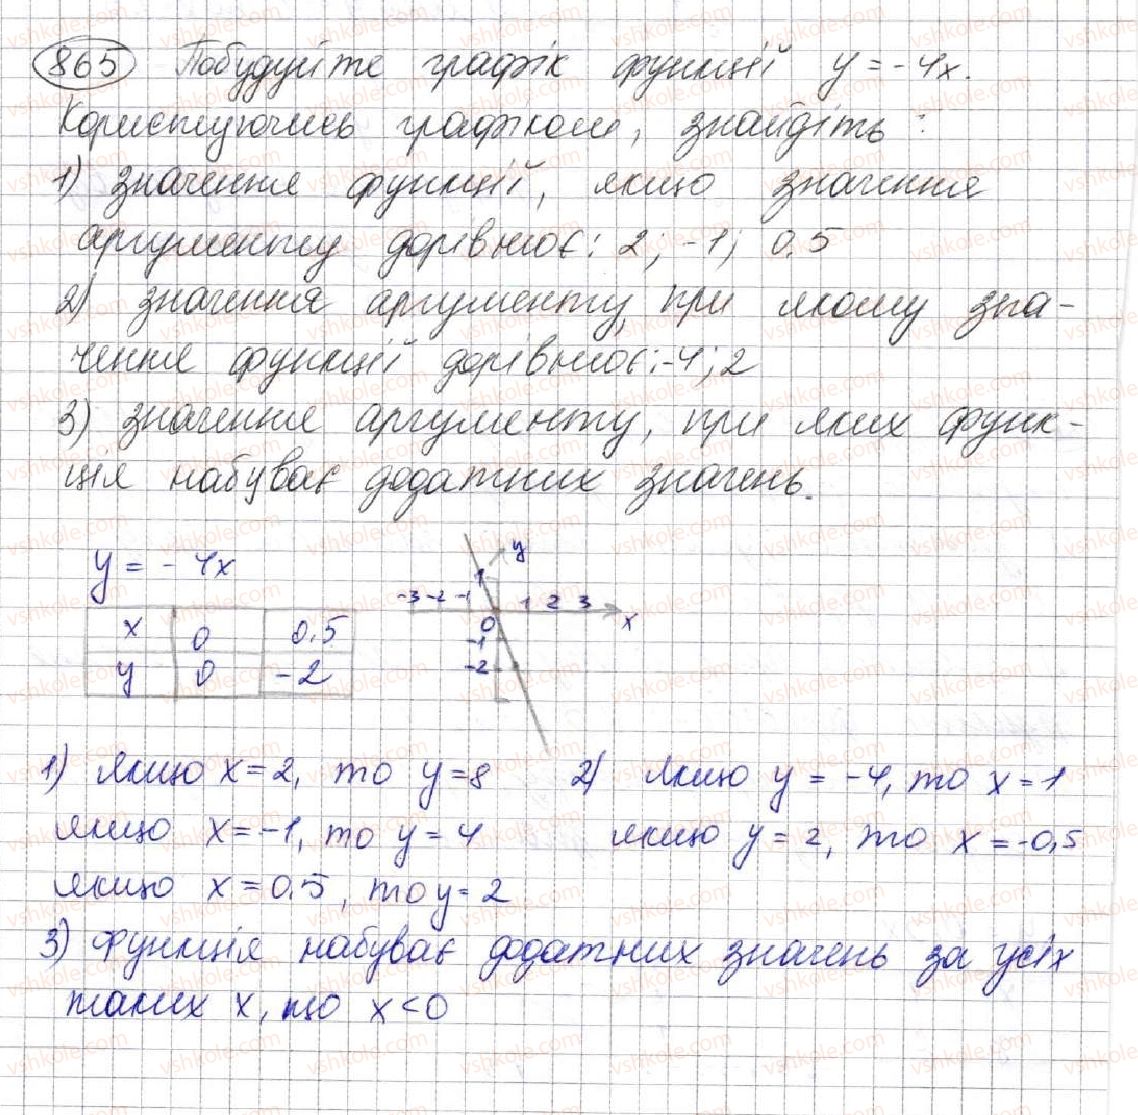 865 Побудуйте графік функції y = -4x.
Користуючись графіком, знайдіть:
1) значення функції, якщо значення
аргументу дорівнює: 2; -1; 0.5
2) значення аргументу, при якому зна-
чення функції дорівнює: -4; 2
3) значення аргументу, при яких функ-
ція набуває додатних значень.
y = -4x
x 0 0.5
y 0 -2
y
1
-3 -2 -1 1 2 3
0 x
-1
-2
1) якщо x = 2, то y = 8
якщо x = -1, то y = 4
якщо x = 0.5, то y = 2
2) якщо y = -4, то x = 1
якщо y = 2, то x = -0,5
3) Функція набуває додатних значень за усіх
таких x, що x < 0
vshkole.com